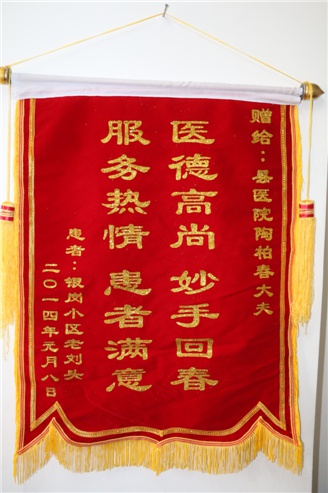 赠给：县医院陶柏春大夫
医德高尚 妙手回春
服务热情 患者满意
患者：银岗小区老刘头
二〇一四年元月八日